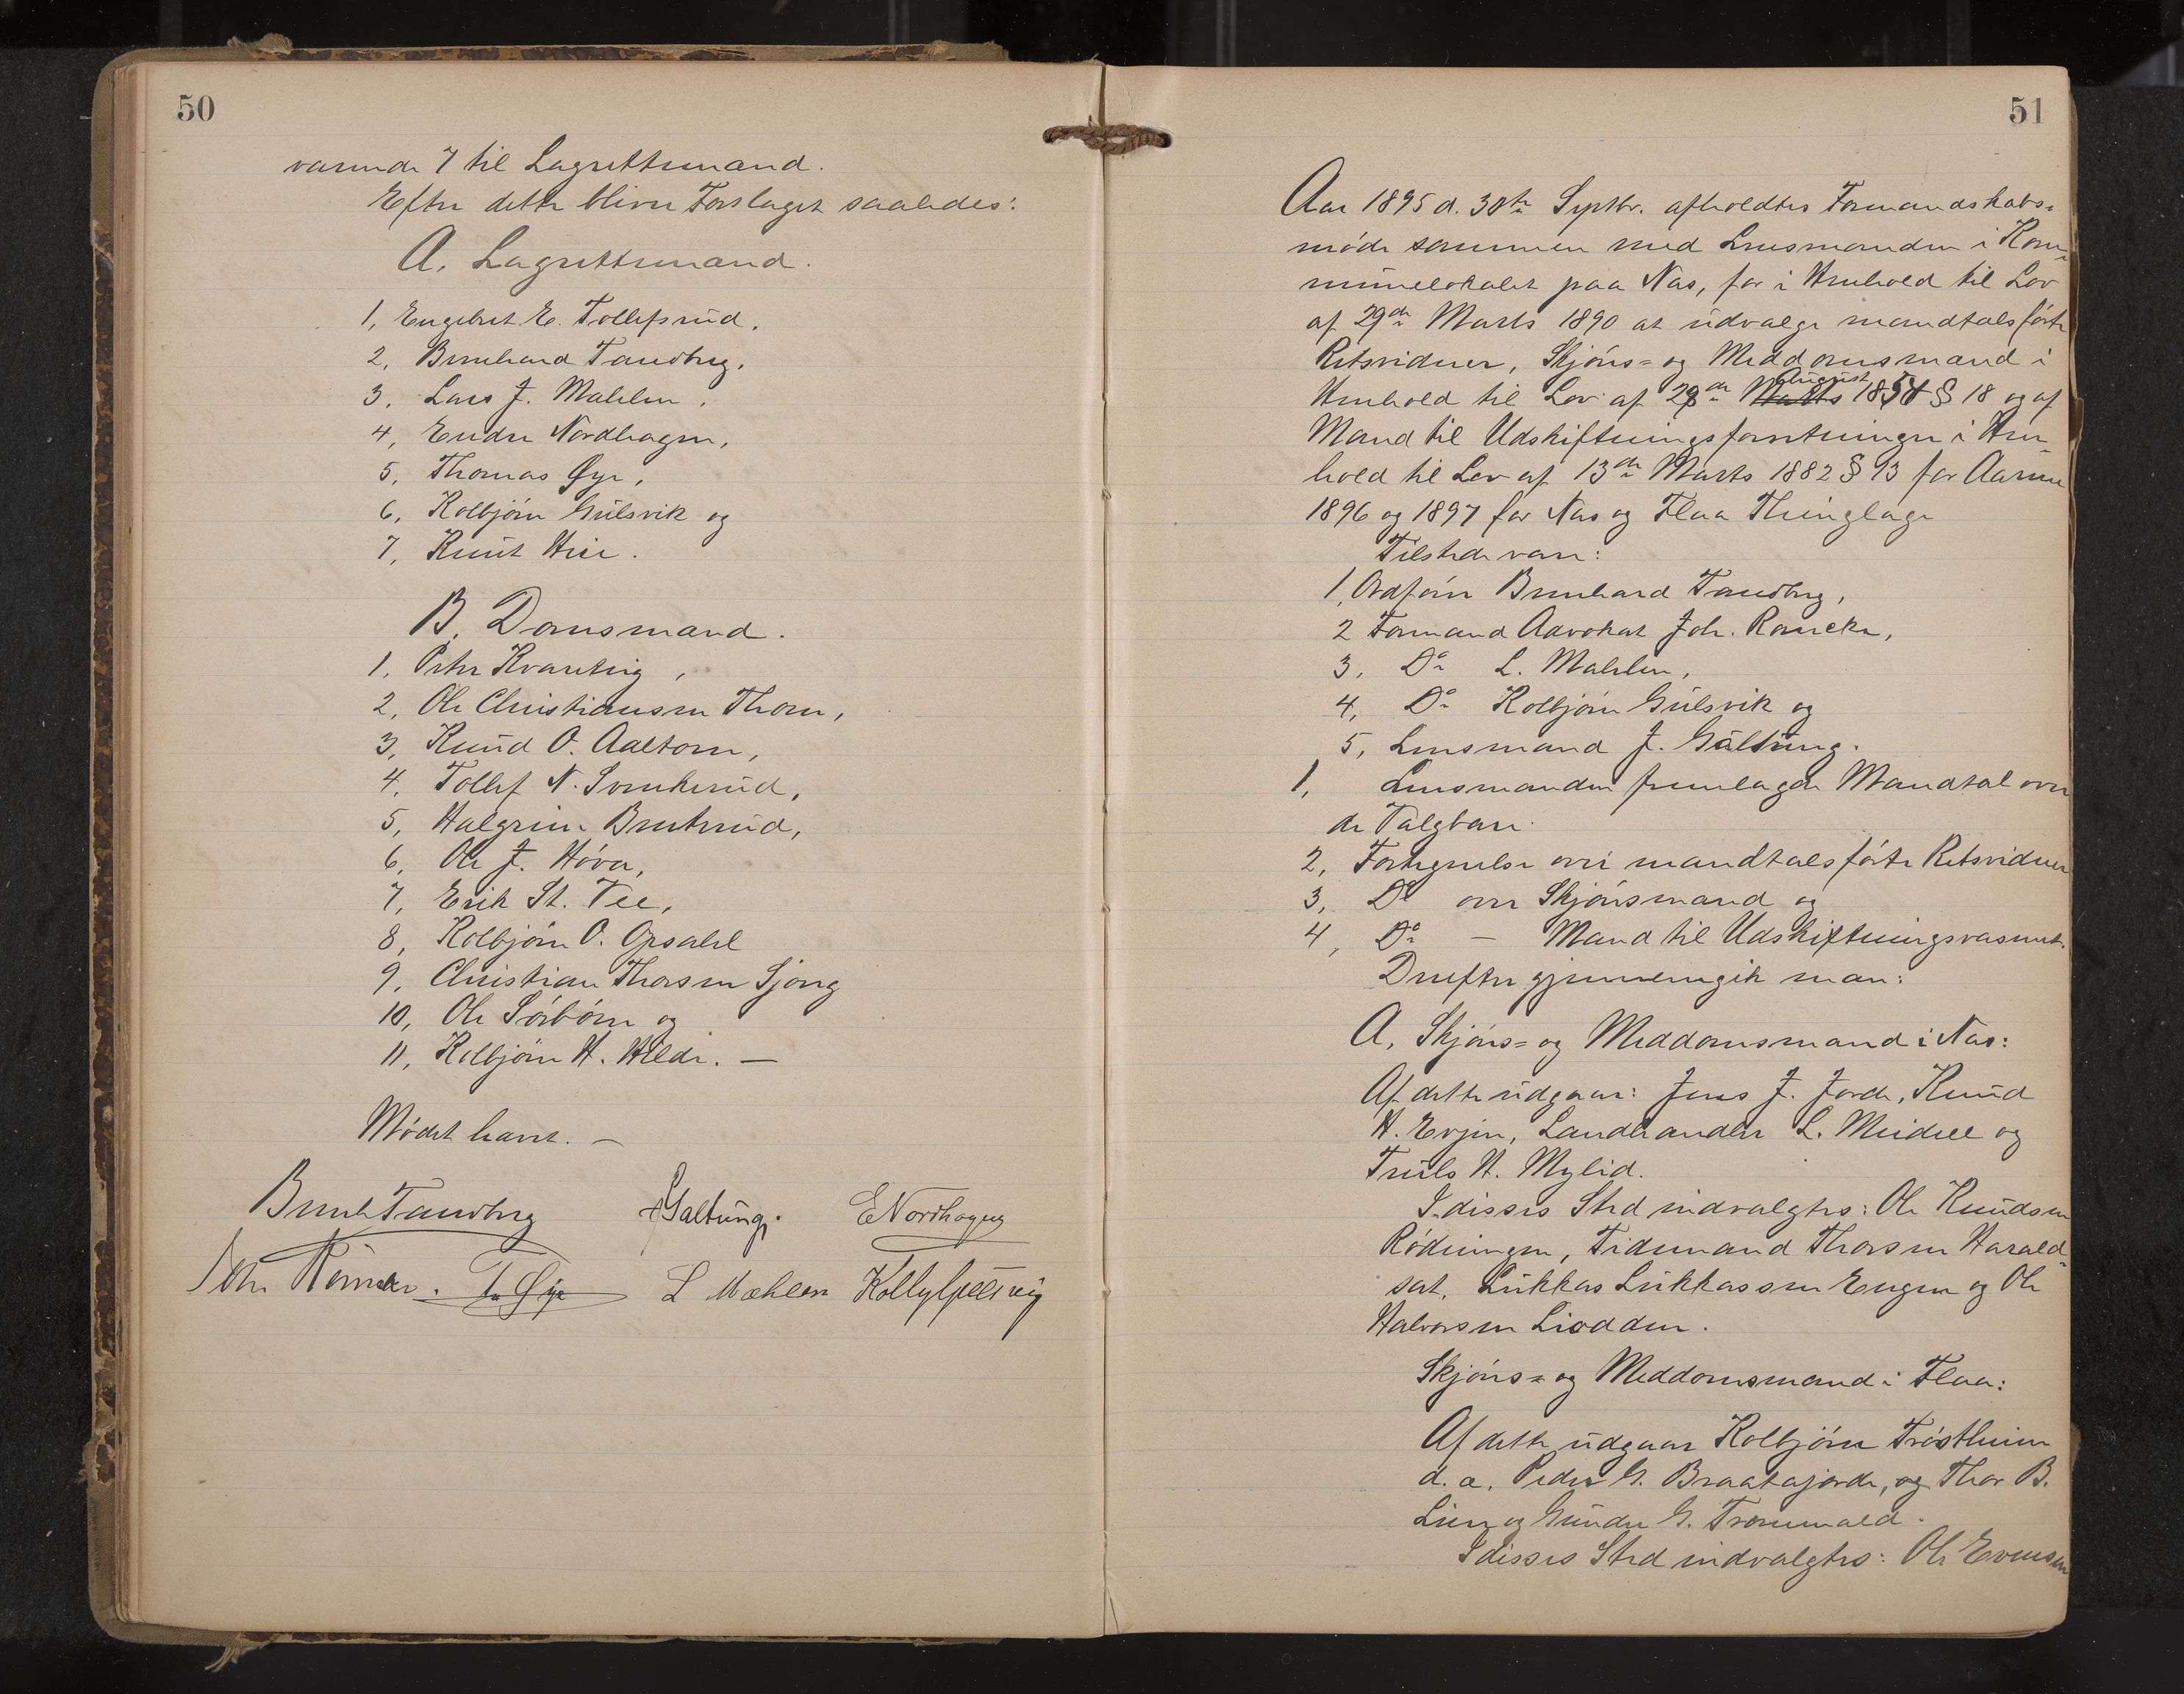 50
værende 7 til Lagrettemænd.
Efter dette bliver Forslaget saaledes:
A. Lagrettemænd.
1, Engebret E. Tollefsrud,
2, Bernhard Tandberg,
3, Lars J. Mæhlen,
4, Endre Nordhagen,
5, Thomas Øye,
6, Kolbjörn Gulsvik og
7, Knut Hiie.
B. Domsmænd.
1, Peter Kvarteig,
2, Ole Christiansen Thom,
3, Knud O. Aaltorn,
4, Tollef N. Svenkerud,
5, Halgrim Brenterud,
6, Ole J. Höva,
7, Erik St. Vee,
8, Kolbjörn O. Opsahl
9, Christian Thorsen Sjong
10, Ole Sörbörn og
11, Kolbjörn H. Hilde. —
Mödet hævet. —
Bernh Tandberg JGaltung. ENordhagen
Joh. Römcke. T. Øye L Mæhlen Kolbj Gulsvig
51
Aar 1895 d. 30te Septbr. afholdtes Formandskabs-
möde sammen med Lensmanden i Kom-
munelokalet paa Næs, for i Henhold til Lov
af 29de Marts 1890 at udvælge mandtalsförte
Retsvidner, Skjöns- og Meddomsmænd i
Henhold til Lov af 28de Marts August 1854 § 18 og af
Mænd til Udskiftningsforretninger i Hen-
hold til Lov af 13de Marts 1882 § 93 for Aarene
1896 og 1897 for Næs og Flaa Thinglage
Tilstede vare:
1, Ordförer Bernhard Tandberg,
2 Formand Advokat Joh. Römcke,
3, Do L. Mæhlen,
4, Do Kolbjörn Gulsvik og
5, Lensmand J. Galtung.
1, Lensmanden fremlagde Mandtal over
de Valgbare.
2, Fortegnelse over mandtalsförte Retsvidner
3, Do over Skjönsmænd og
4, Do — Mænd til Udskiftningsvæsenet.
Derefter gjennemgik man:
A, Skjöns- og Meddomsmænd i Næs:
Af dette udgaar: Jens J. Jorde, Knud
H. Evjen, Landhandler L. Meidell og
Truls H. Mylid.
I disses Sted indvalgtes: Ole Knudsen
Rödningen, Tidemand Thorsen Harald-
set, Lukkas Lukkassen Engen og Ole
Halvorsen Liodden.
Skjöns- og Meddomsmænd i Flaa:
Af dette udgaar Kolbjörn Tröstheim
d. æ. Peder G. Braatajorde, og Thor B.
Lien og Gunder G. Trommald.
I disses Sted indvalgtes: Ole Evensen